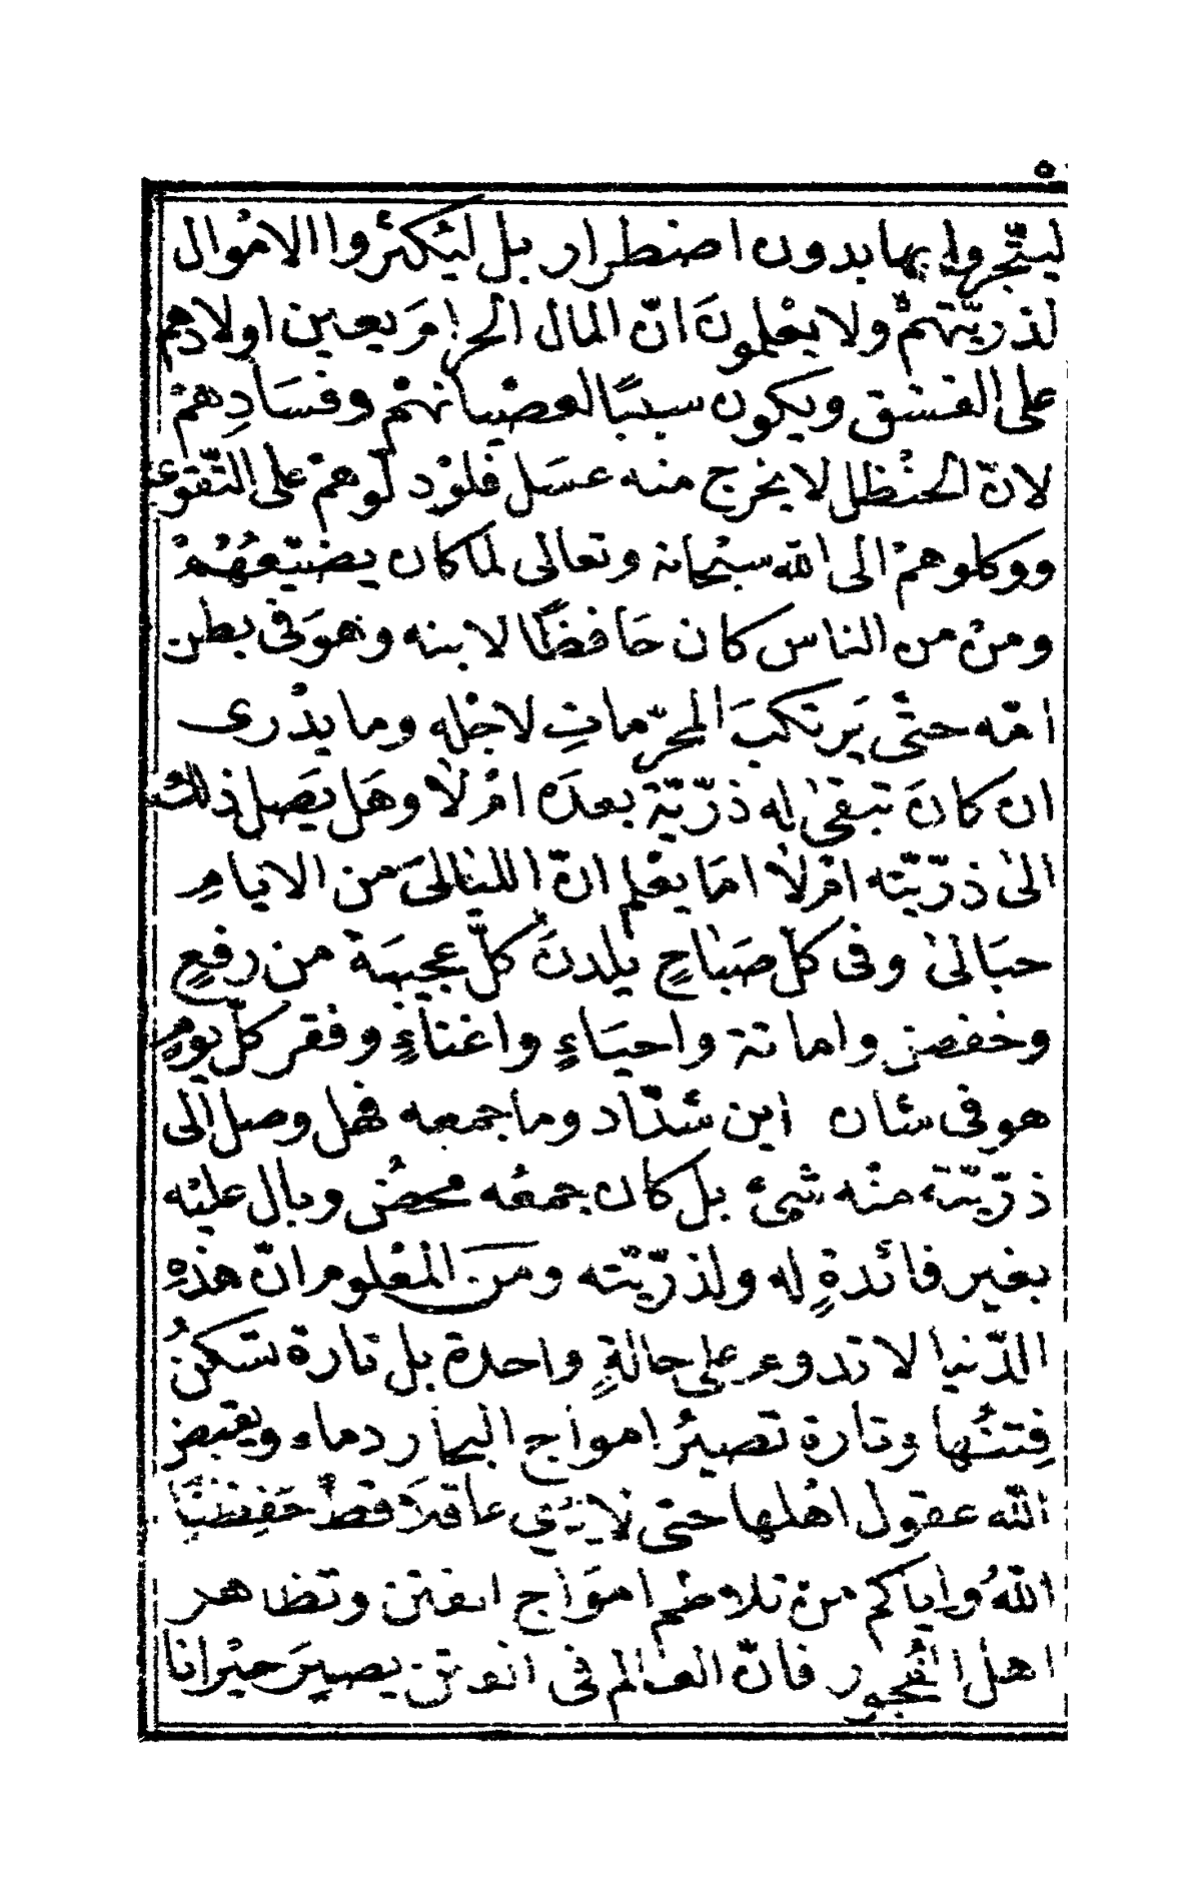 ٥
ليتّجروا بها بدون اضطرار بل ليُكثرُوا الاموال
لذريّتهمْ ولا يعْلمونَ انّ المال الحرامَ يعين اولادهم
على الفسْق ويكون سببًا لعصْيانهمْ وفسَادِهمْ
لانّ الحنْظل لا يخرج منه عسَل فلوْ دلّوهمْ على التّقوى
ووكلوهمْ الى اللّه سبْحانه وتعالى لما كان يضيّعهُمْ
ومنْ من الناس كان حَافظًا لابنه وهوَ فى بطن
امّه حتّى يَرتكبَ المحرّماتِ لاجْله وما يدْرى
ان كانَ تبقىٰ له ذرّيّة بعدَه امْ لاْ وهَل يصَل ذلكَ
الىٰ ذرّيّته امْ لاْ امَا يعْلم انّ الليَالىَ من الايامِ
حبَالىٰ وفى كلّ صَبَاحٍ يلدنَ كلّ عجيبَة من رفعٍ
وخفضٍ واماتة واحيَاءٍ واغناءٍ وفقر كلّ يومٍ
هو فى شأن اين شدّاد وما جمعه فهل وصل الى
ذرّيّته منْه شئ بل كان جمعُه محضُ وبال عليْه
بغير فائدةٍ له ولذرّيّته ومَن المعْلوم انّ هذهِ
الدّنيا لا تدوم على حالةٍ واحدة بل تارة تسْكنُ
فِتنُها وتارة تصيرُ امواج البحار دماء ويقبض
اللّه عقول اهْلها حتى لا يَرى عاقلاً قطّ حَفِظنَا
اللّهُ واياكم من تلاطم اموَاج الفتن وتظاهر
اهل الفُجور فانّ العالم فى الفتن يصيرَ حيْرانا